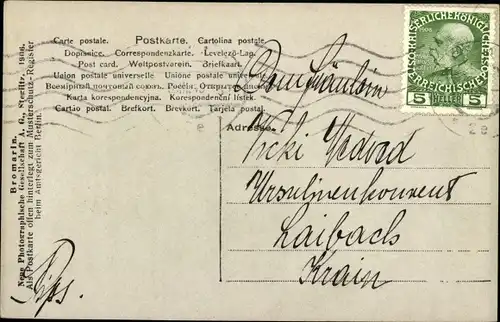 Carte postale. Postkarte. Cartolina postale.
Dopisnice. Correspondenzkarte. Levelező-Lap.
Post card. Weltpostverein. Briefkaart.
Union postale universelle. Unione postale universale.
Всемірный почтовый союзъ. Россія. Открытое письмо.
Karta korespondencyjna. Korespondenční lístek.
Cartão postal. Brefkort. Brevkort. Tarjeta postal.
5 HELLER 5
Adresse.
Vicki
Ursulinenkonvent
Laibach
Krain
Bromarin.
Neue Photographische Gesellschaft A. G., Steglitz. 1906.
Als Postkarte offen hinterlegt zum Musterschutz-Register
beim Amtsgericht Berlin.